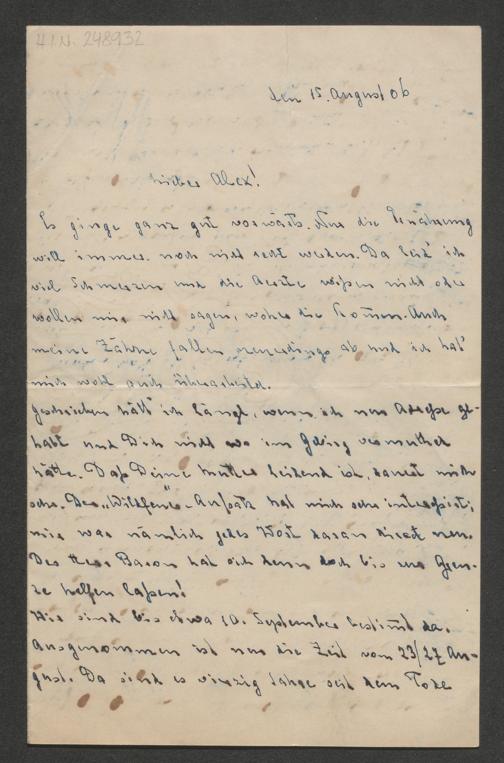 H.I.N. 248932
den 15. August 06
Lieber Alex!
Es ginge ganz gut vorwärts. Nur die Ernährung
will immer noch nicht recht werden. Da leid' ich
viel Schmerzen und die Aerzte wißen nicht oder
wollen mir nicht sagen, woher die kom̅en. Auch
meine Zähne fallen neuerdings ab und ich hab'
mich wohl auch überarbeitet.
Geschrieben hätt' ich längst, wenn ich nur Adreße ge-
habt und Dich nicht wo im Gebirg vermuthet
hätte. Daß Deine Mutter leidend ist, dauert mich
sehr. Der „Wildfeuer"-Aufsatz hat mich sehr interessirt;
mir war nämlich jedes Wort daran direct neu.
Der Herr Baron hat sich denn doch bis zur Gren-
ze helfen laßen!
Wir sind bis etwa 10. September bestim̅t da.
Ausgenommen ist nur die Zeit vom 23/27 Au-
gust. Da sind es vierzig Jahre seit dem Tode